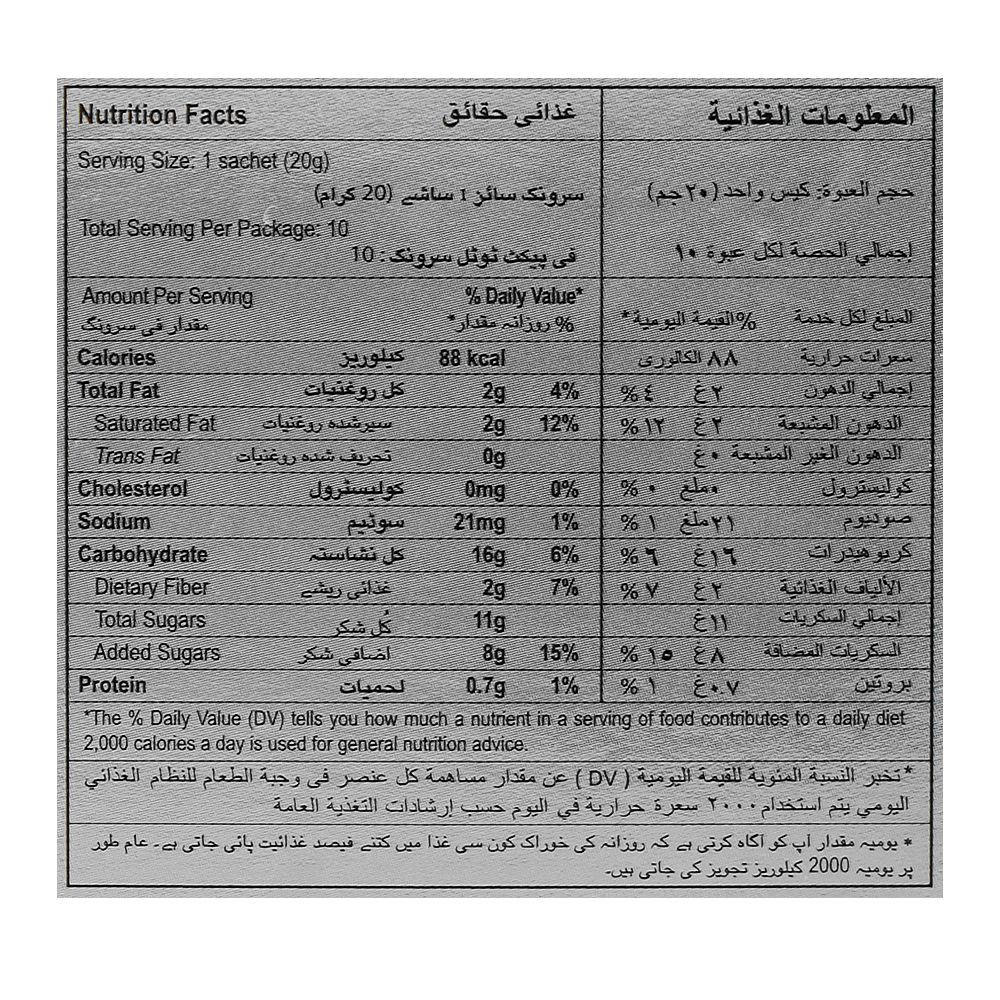 Nutrition Facts غذائی حقائق المعلومات الغذائية
Serving Size: 1 sachet (20g)
سرونگ سائز 1 ساشے (20 گرام) حجم العبوة: كيس واحد (٢٠جم)
Total Serving Per Package: 10
فی پیکٹ ٹوٹل سرونگ : 10 إجمالي الحصة لكل عبوة ١٠
Amount Per Serving % Daily Value*
مقدار فی سرونگ % روزانہ مقدار* المبلغ لكل خدمة %القيمة اليومية*
Calories کیلوریز 88 kcal سعرات حرارية ٨٨ الكالورى
Total Fat کل روغنیات 2g 4% إجمالي الدهون ٢غ ٤%
Saturated Fat سیرشدہ روغنیات 2g 12% الدهون المشبعة ٢غ ١٢%
Trans Fat تحریف شدہ روغنیات 0g الدهون الغير المشبعة ٠غ
Cholesterol کولیسٹرول 0mg 0% كوليسترول ٠ملغ ٠%
Sodium سوڈیم 21mg 1% صوديوم ٢١ملغ ١%
Carbohydrate کل نشاستہ 16g 6% كربوهيدرات ١٦غ ٦%
Dietary Fiber غذائی ریشے 2g 7% الألياف الغذائية ٢غ ٧%
Total Sugars کُل شکر 11g إجمالي السكريات ١١غ
Added Sugars اضافی شکر 8g 15% السكريات المضافة ٨غ ١٥%
Protein لحمیات 0.7g 1% بروتين ٠.٧غ ١%
*The % Daily Value (DV) tells you how much a nutrient in a serving of food contributes to a daily diet
2,000 calories a day is used for general nutrition advice.
*تخبر النسبة المئوية للقيمة اليومية ( DV ) عن مقدار مساهمة كل عنصر فى وجبة الطعام للنظام الغذائي
اليومي يتم استخدام ٢٠٠٠ سعرة حرارية في اليوم حسب إرشادات التغذية العامة
* یومیہ مقدار آپ کو آگاہ کرتی ہے کہ روزانہ کی خوراک کون سی غذا میں کتنے فیصد غذائیت پائی جاتی ہے۔ عام طور
پر یومیہ 2000 کیلوریز تجویز کی جاتی ہیں۔